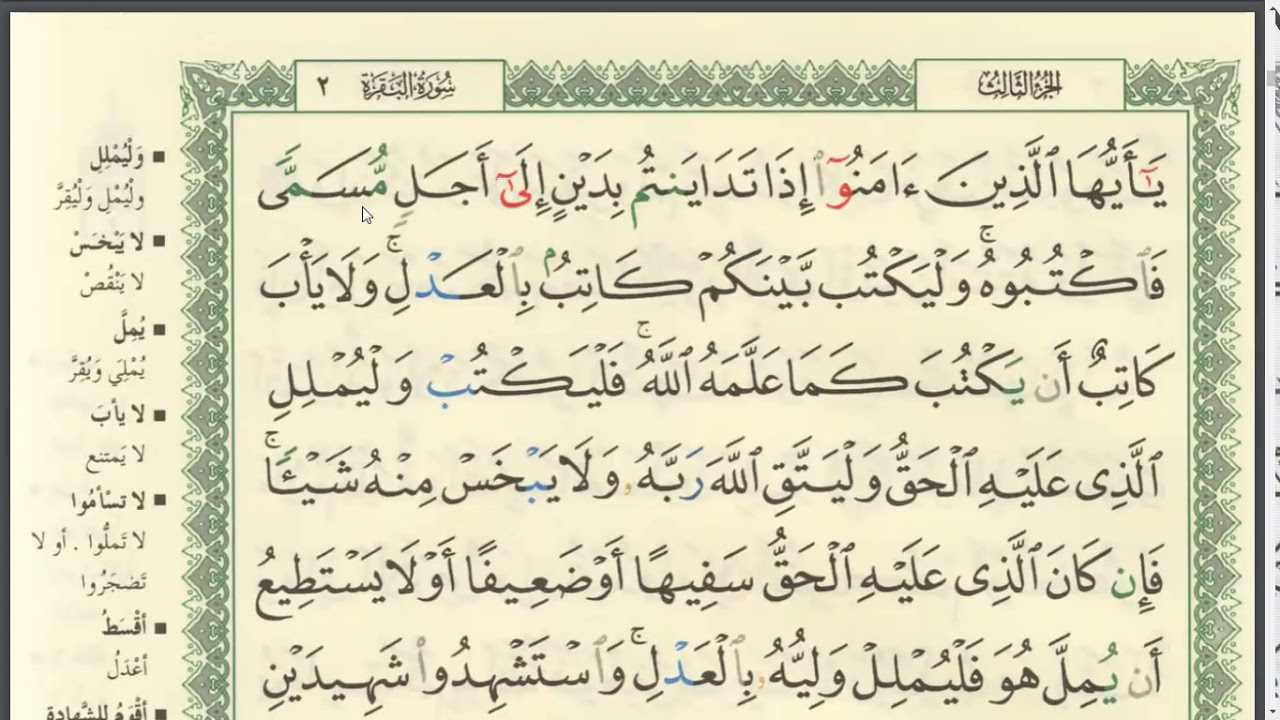 الجزء الثالث
سورة البقرة ٢
يَـٰٓأَيُّهَا ٱلَّذِينَ ءَامَنُوٓا۟ إِذَا تَدَايَنتُم بِدَيْنٍ إِلَىٰٓ أَجَلٍ مُّسَمًّى
فَٱكْتُبُوهُ ۚ وَلْيَكْتُب بَّيْنَكُمْ كَاتِبٌۢ بِٱلْعَدْلِ ۚ وَلَا يَأْبَ
كَاتِبٌ أَن يَكْتُبَ كَمَا عَلَّمَهُ ٱللَّهُ ۚ فَلْيَكْتُبْ وَلْيُمْلِلِ
ٱلَّذِى عَلَيْهِ ٱلْحَقُّ وَلْيَتَّقِ ٱللَّهَ رَبَّهُۥ وَلَا يَبْخَسْ مِنْهُ شَيْـًٔا ۚ
فَإِن كَانَ ٱلَّذِى عَلَيْهِ ٱلْحَقُّ سَفِيهًا أَوْ ضَعِيفًا أَوْ لَا يَسْتَطِيعُ
أَن يُمِلَّ هُوَ فَلْيُمْلِلْ وَلِيُّهُۥ بِٱلْعَدْلِ ۚ وَٱسْتَشْهِدُوا۟ شَهِيدَيْنِ
■ وَلْيُمْلِلِ
ولْيُمْلِ وَلْيُقِرَّ
■ لا يَبْخَسْ
لا يَنْقُصْ
■ يُمِلَّ
يُمْلِي وَيُقِرَّ
■ لا يأبَ
لا يَمتنع
■ لا تسأمُوا
لا تَملُّوا . أو لا
تَضْجَرُوا
■ أقْسَطُ
أعْدَلُ
■ أقْوَمُ للشَّهادة